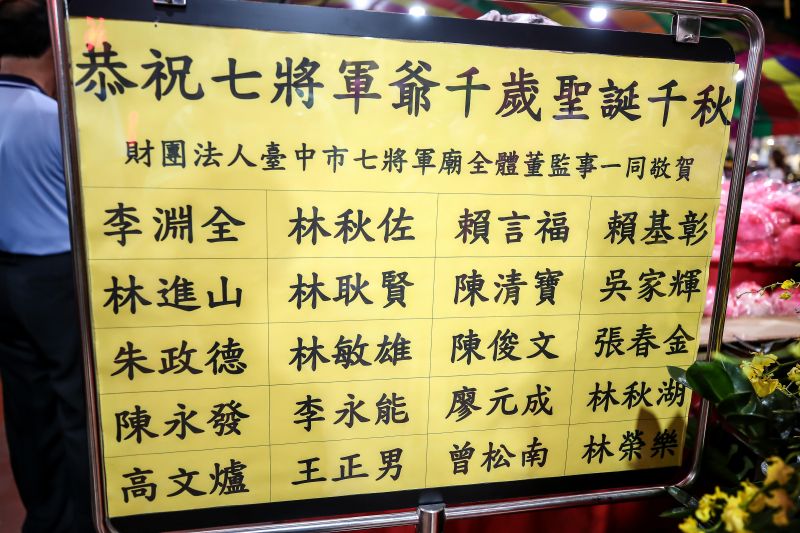 恭祝七將軍爺千歲聖誕千秋
財團法人臺中市七將軍廟全體董監事一同敬賀
李淵全 林秋佐 賴言福 賴基彰
林進山 林耿賢 陳清寶 吳家輝
朱政德 林敏雄 陳俊文 張春金
陳永發 李永能 廖元成 林秋湖
高文爐 王正男 曾松南 林榮樂